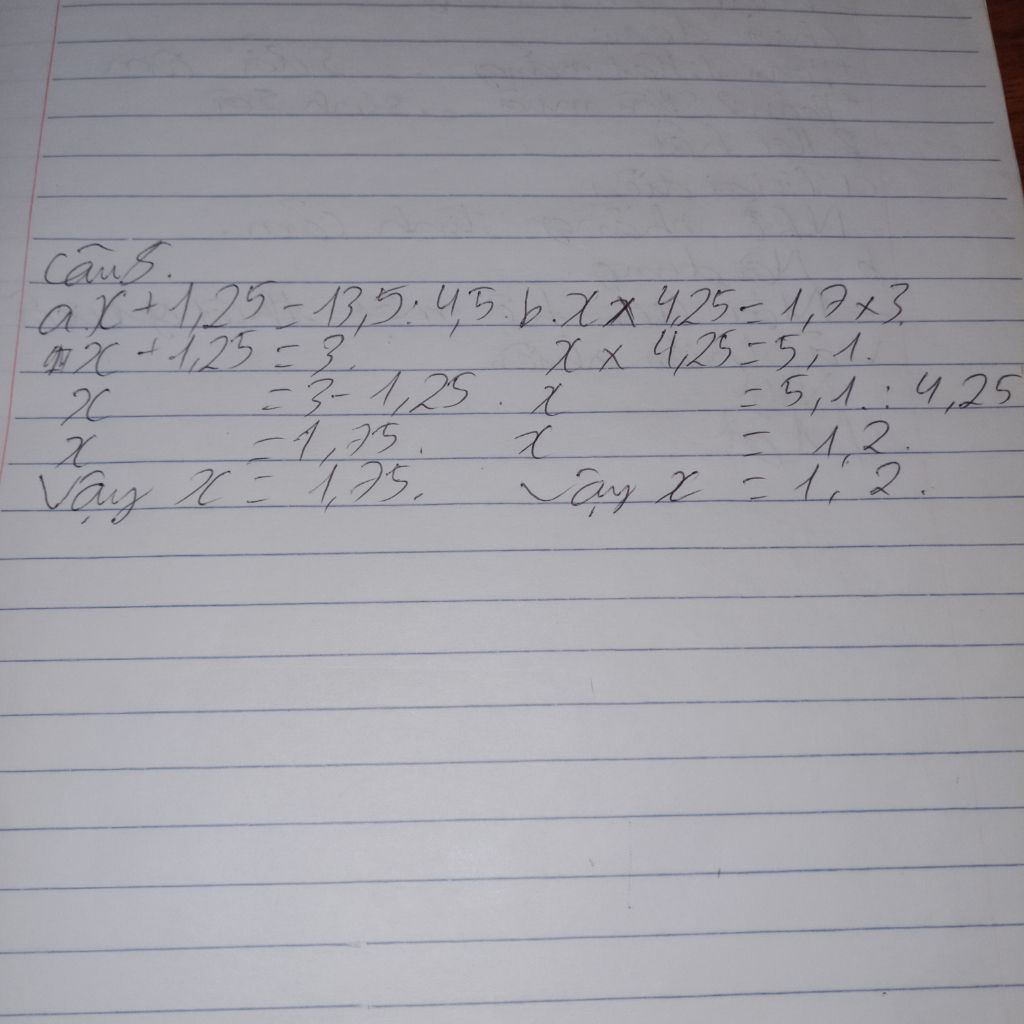 Câu 5.
a. x + 1,25 = 13,5 : 4,5 b. x x 4,25 = 1,7 x 3.
x + 1,25 = 3. x x 4,25 = 5,1.
x = 3 - 1,25. x = 5,1 : 4,25
x = 1,75. x = 1,2.
Vậy x = 1,75. Vậy x = 1,2.